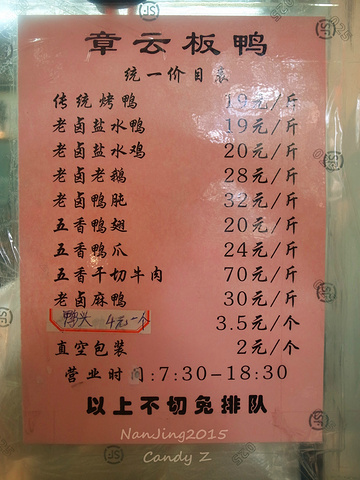 章云板鸭
统一价目表
传统烤鸭 19元/斤
老卤盐水鸭 19元/斤
老卤盐水鸡 20元/斤
老卤老鹅 28元/斤
老卤鸭肫 32元/斤
五香鸭翅 20元/斤
五香鸭爪 24元/斤
五香干切牛肉 70元/斤
老卤麻鸭 30元/斤
鸭头 4元一个 3.5元/个
真空包装 2元/个
营业时间:7:30-18:30
以上不切免排队
NanJing2015
Candy Z